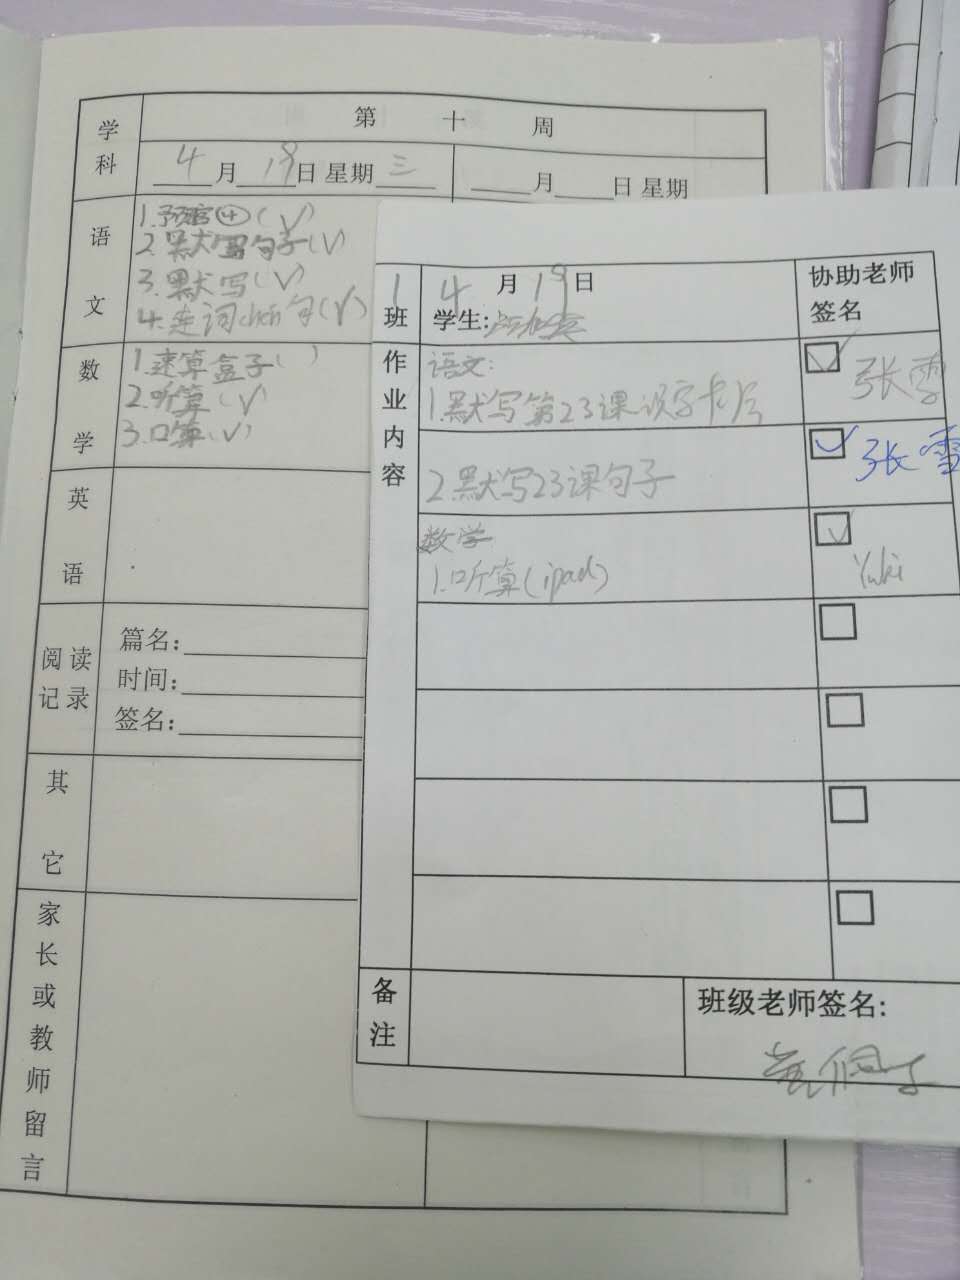 学科
第 十 周
4月19日 星期三
月 日 星期
语文
1.预习④(√)
2.默写句子(√)
3.默写(√)
4.连词chén句(√)
数学
1.速算盒子( )
2.听算(√)
3.口算(√)
英语
阅读记录
篇名:
时间:
签名:
其它
家长或教师留言
1班
4月19日
学生:
协助老师签名
作业内容
语文:
1.默写第23课识字卡片
张雪
2.默写23课句子
张雪
数学
1.听算(ipad)
Yuki
备注
班级老师签名: